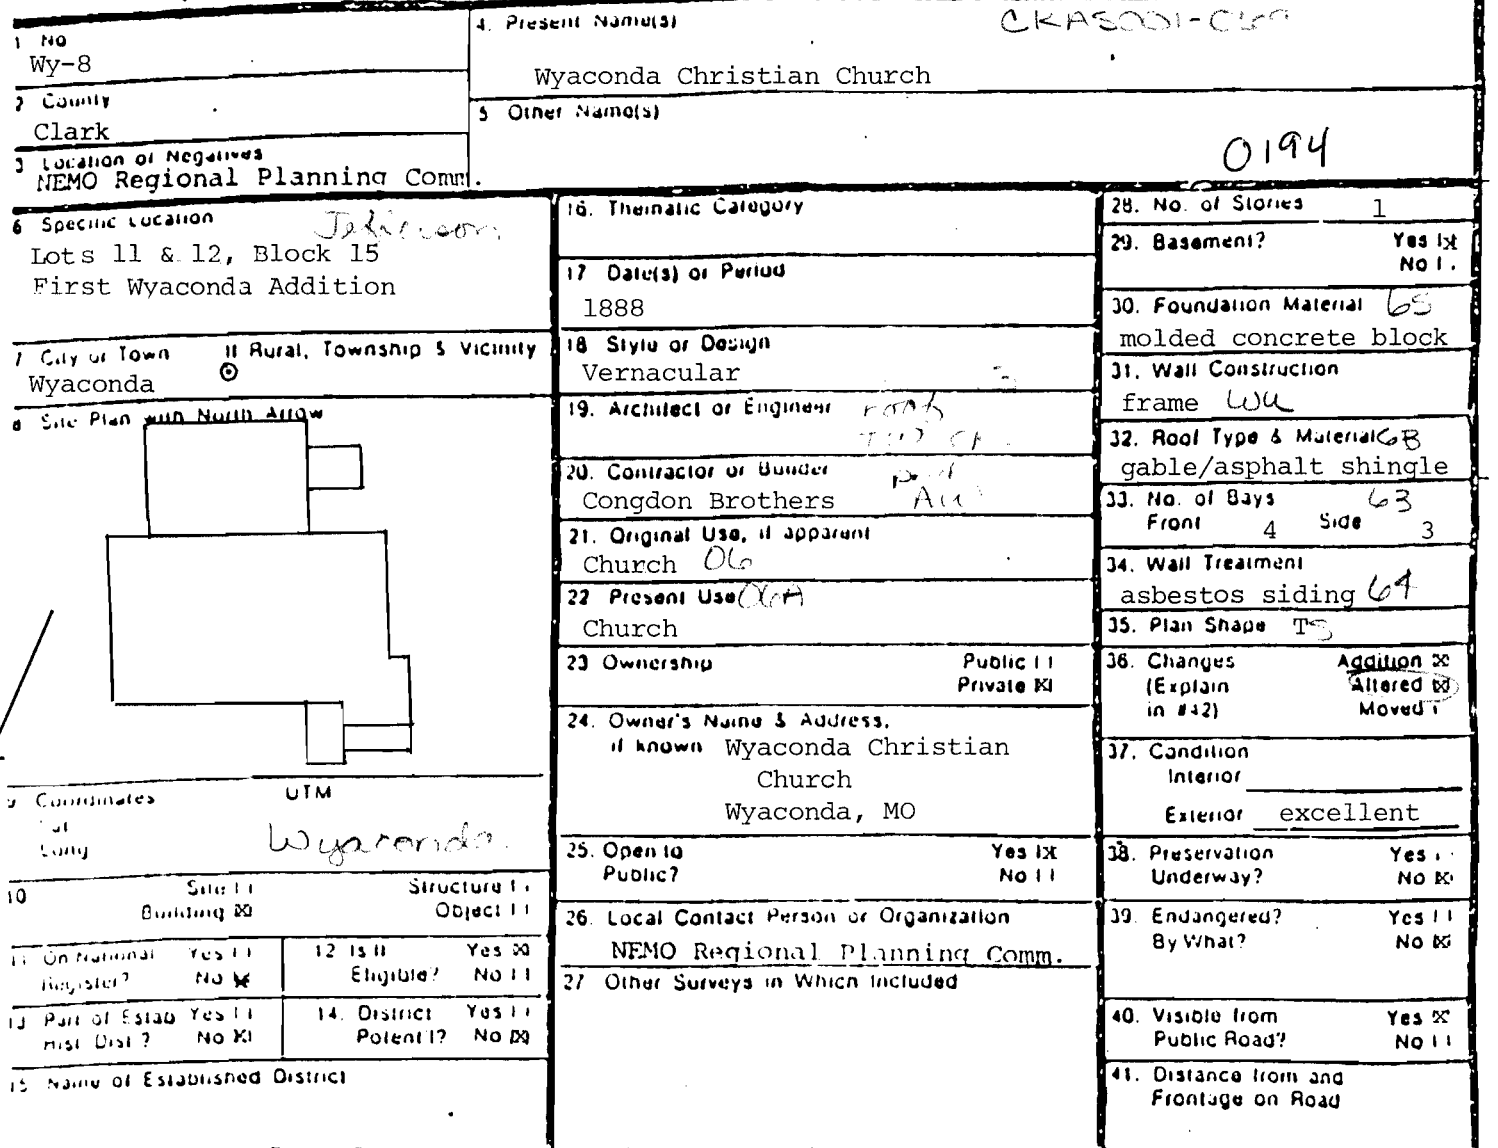 1 No
Wy-8
2 County
Clark
3 Location of Negatives
NEMO Regional Planning Comm.
4. Present Name(s)
Wyaconda Christian Church
5 Other Name(s)
0194
6 Specific Location
Lots 11 & 12, Block 15
First Wyaconda Addition
7 City or Town If Rural, Township & Vicinity
Wyaconda
8 Site Plan with North Arrow
9 Coordinates UTM
Lat
Long
Wyaconda
10 Site Structure
Building ☒ Object
11 On National Register? Yes No ☒
12 Is it Eligible? Yes ☒ No
13 Part of Estab Hist Dist? Yes No ☒
14. District Potent'l? Yes No ☒
15 Name of Established District
16. Thematic Category
17 Date(s) or Period
1888
18 Style or Design
Vernacular
19. Architect or Engineer
20. Contractor or Builder
Congdon Brothers
21. Original Use, if apparent
Church 06
22 Present Use 06A
Church
23 Ownership Public
Private ☒
24. Owner's Name & Address,
if known Wyaconda Christian
Church
Wyaconda, MO
25. Open to Yes ☒
Public? No
26. Local Contact Person or Organization
NEMO Regional Planning Comm.
27 Other Surveys in Which Included
28. No. of Stories 1
29. Basement? Yes ☒
No
30. Foundation Material 65
molded concrete block
31. Wall Construction
frame
32. Roof Type & Material GB
gable/asphalt shingle
33. No. of Bays 63
Front 4 Side 3
34. Wall Treatment
asbestos siding 64
35. Plan Shape
36. Changes Addition ☒
(Explain Altered ☒
in #42) Moved
37. Condition
Interior
Exterior excellent
38. Preservation Yes
Underway? No ☒
39. Endangered? Yes
By What? No ☒
40. Visible from Yes ☒
Public Road? No
41. Distance from and
Frontage on Road